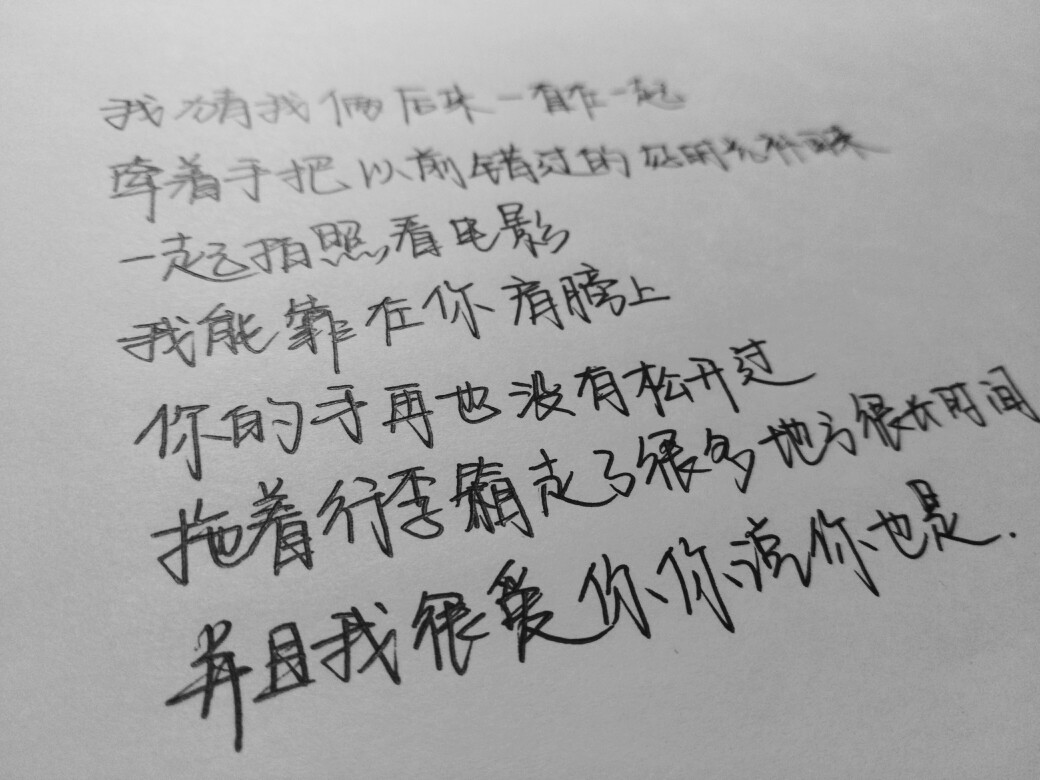 我猜我俩后来一直在一起
牵着手把以前错过的补回来
一起拍照看电影
我能靠在你肩膀上
你的手再也没有松开过
拖着行李箱走了很多地方很长时间
并且我很爱你你说你也是.